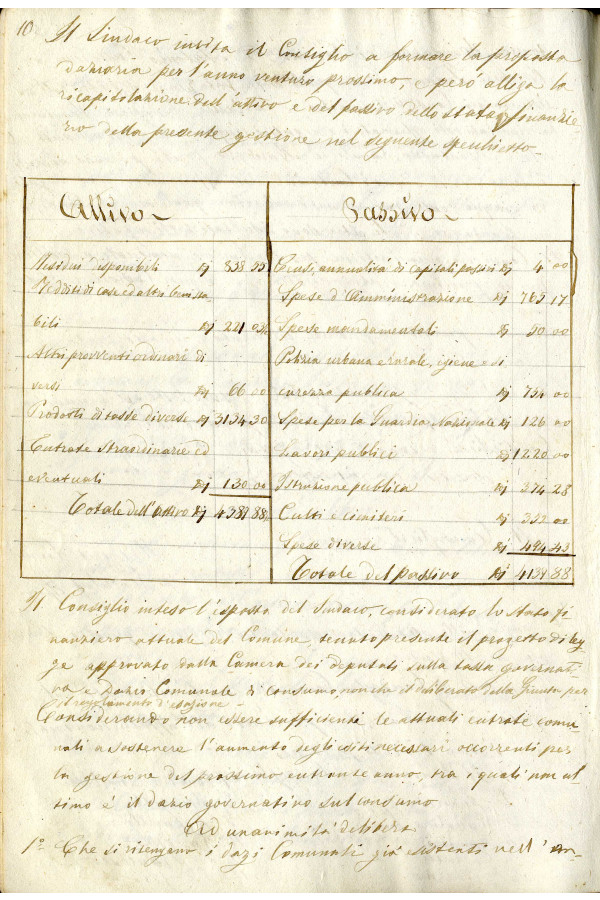 10 Il Sindaco invita il Consiglio a formare la proposta
daziaria per l'anno venturo prossimo, e però alliga la
ricapitolazione dell'attivo e del passivo dello stato finanzie-
rio della presente gestione nel seguente specchietto -
Attivo -
Residui disponibili 838 55
Redditi di case ed altri beni sta-
bili 221
Altri proventi ordinari di
versi 66 00
Prodotti di tasse diverse 3134 30
Entrate straordinarie ed
eventuali 130 00
Totale dell'attivo
Passivo -
Censi, annualità di capitali passivi 4 00
Spese d'Amministrazione 765 17
Spese mandamentali 50 00
Polizia urbana e rurale, igiene e si
curezza pubblica 754 00
Spese per la Guardia Nazionale 126 00
Lavori pubblici 1220 00
Istruzione pubblica 374 28
Culti e cimiteri 00
Spese diverse 494 43
Totale del passivo 88
Il Consiglio inteso l'esposto del Sindaco, considerato lo stato fi
nanziero attuale del Comune, tenuto presente il progetto di leg
ge approvato dalla Camera dei deputati sulla tassa governati
va e Dazio Comunale di consumo, non che il deliberato della Giunta per
il regolamento d'esazione -
Considerando non essere sufficienti le attuali entrate comu-
nali a sostenere l'aumento degli esiti necessari occorrenti per
la gestione del prossimo entrante anno, tra i quali non ul-
timo è il dazio governativo sul consumo
Ad unanimità delibera
1° Che si ritengano i dazi Comunali già esistenti nell' an-